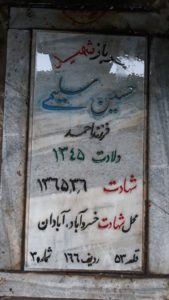 سرباز شهید
حسین سلیمی
فرزند احمد
ولادت ۱۳۴۵
شهادت ۱۳۶۵٫۳٫۶
محل شهادت خسروآباد، آبادان
قطعه ۵۳ ردیف ۱۶۶ شماره ۳